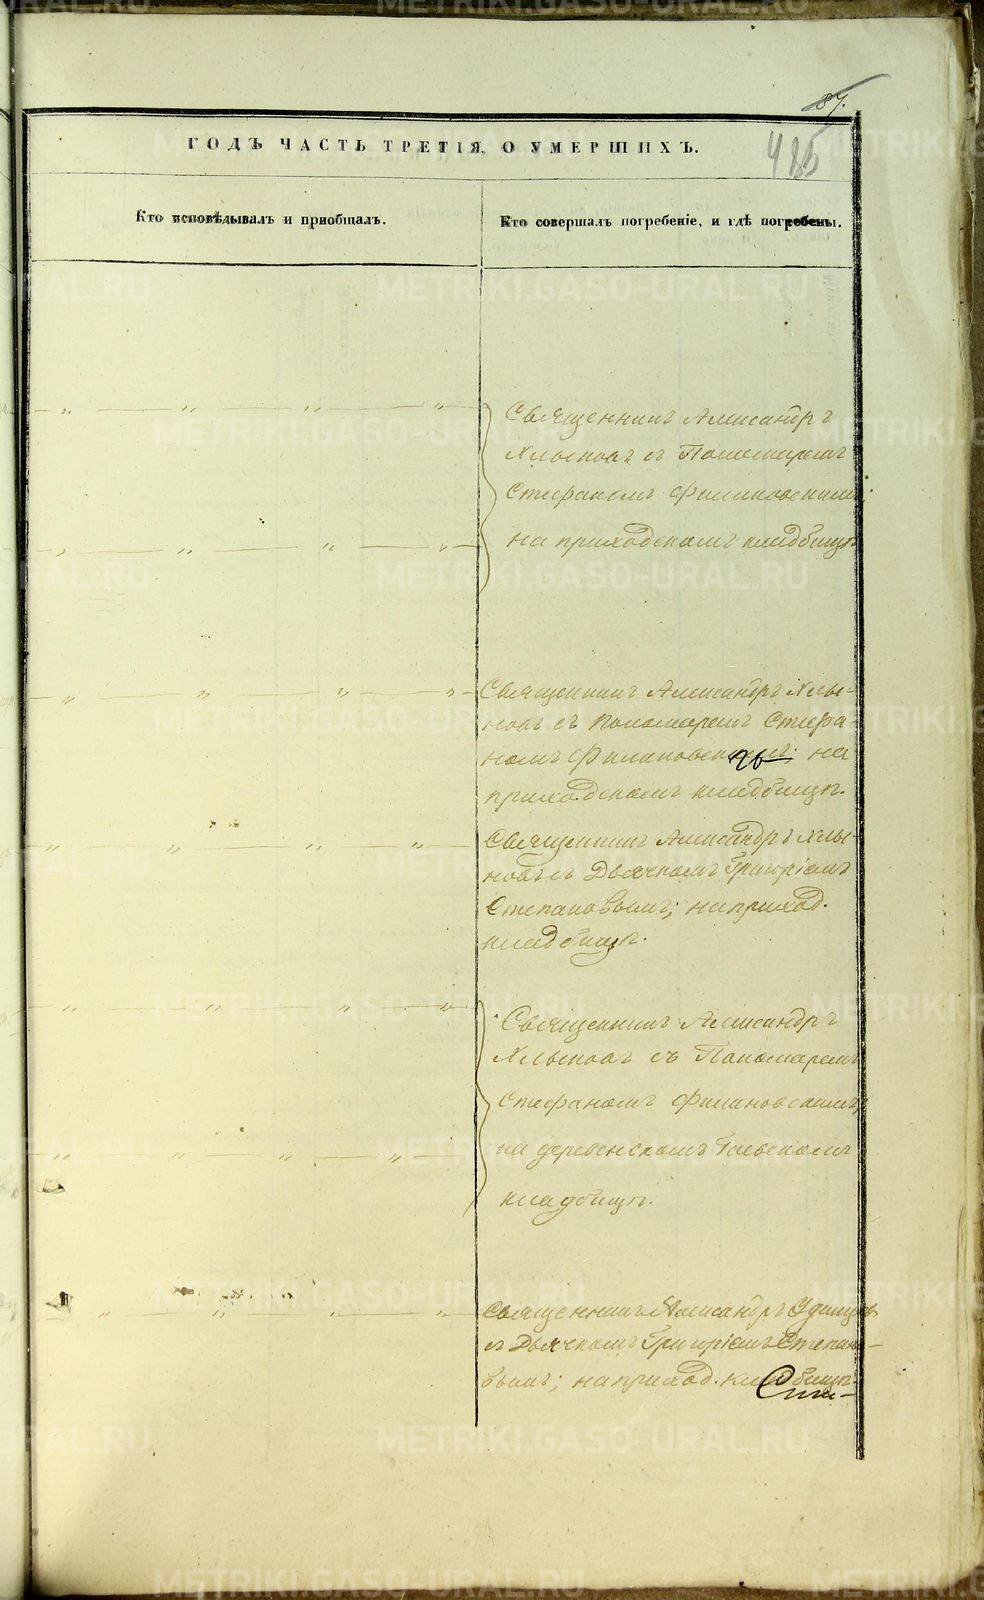 87.
485
ГОДЪ ЧАСТЬ ТРЕТІЯ, О УМЕРШИХЪ.
Кто исповѣдывалъ и пріобщалъ.
Кто совершалъ погребеніе, и гдѣ погребены.
Священникъ Александръ
Хлыновъ съ Пономаремъ
Стефаномъ Филиновскимъ;
на приходскомъ кладбищѣ
Священникъ Александръ Хлы-
новъ съ Пономаремъ Стефа-
номъ Филиновскимъ; на
приходскомъ кладбищѣ.
Священникъ Александръ Хлы-
новъ съ Дьячкомъ Григоріемъ
Степановымъ; на приход.
кладбищѣ.
Священникъ Александръ
Хлыновъ съ Пономаремъ
Стефаномъ Филиновскимъ,
на деревенскомъ Гаевскомъ
кладбищѣ.
Священникъ Александръ Удинцовъ
съ Дьячкомъ Григоріемъ Степано-
вымъ; на приход. кладбищѣ.
METRIKI.GASO-URAL.RU